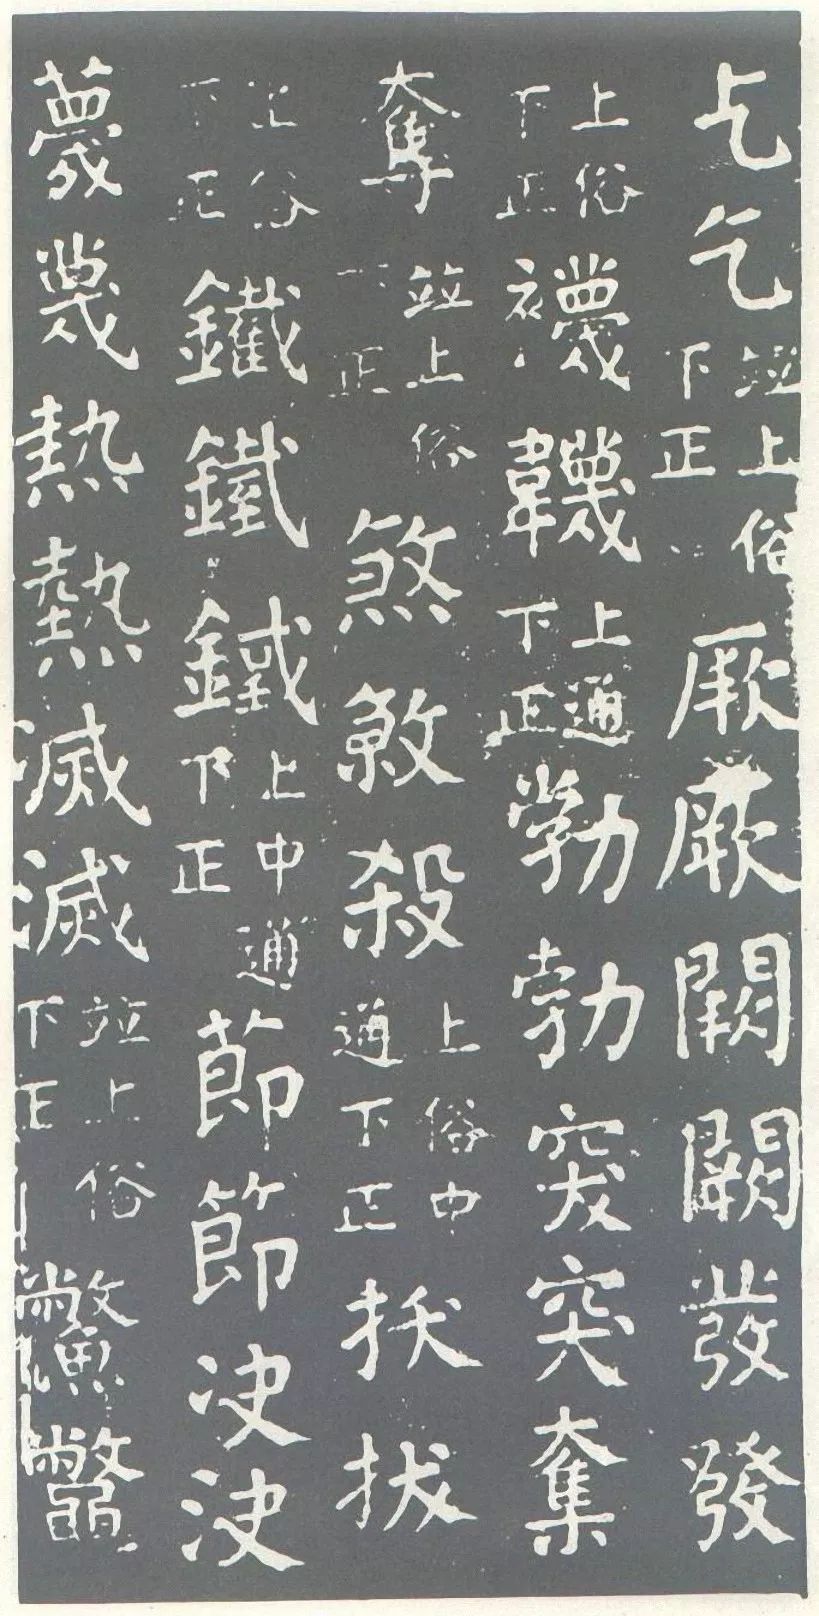 乞並上俗下正厥厥闕闕發發
上俗下正襪韈上通下正勃勃突突奪
奪並上俗下正煞殺上俗中通下正抜拔
上俗下正鐵鐵鐵上中通下正莭節决決
蔑蔑熱熱滅滅並上俗下正鼈